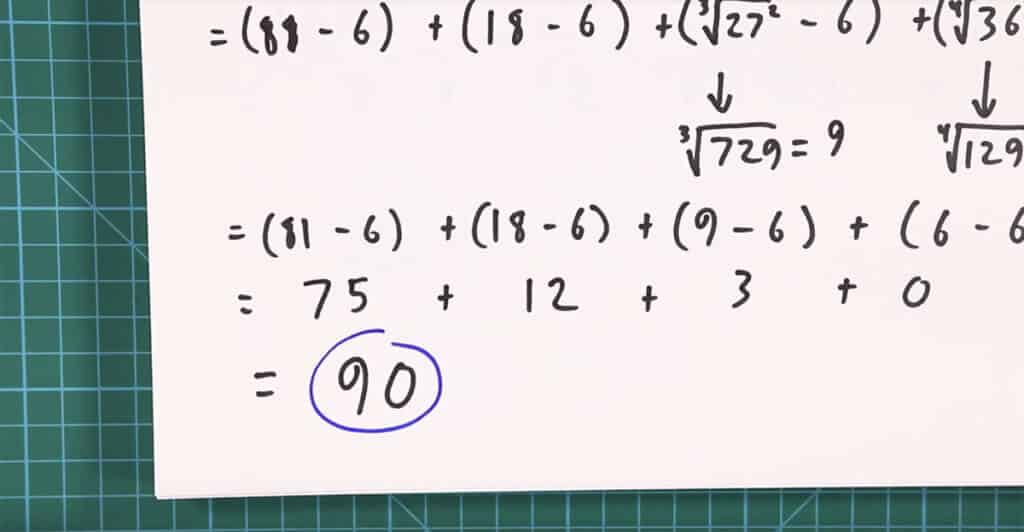 = (81 - 6) + (18 - 6) + (∛27² - 6) + (∜36
↓ ↓
∛729 = 9 ∜129
= (81 - 6) + (18 - 6) + (9 - 6) + (6 - 6
= 75 + 12 + 3 + 0
= 90